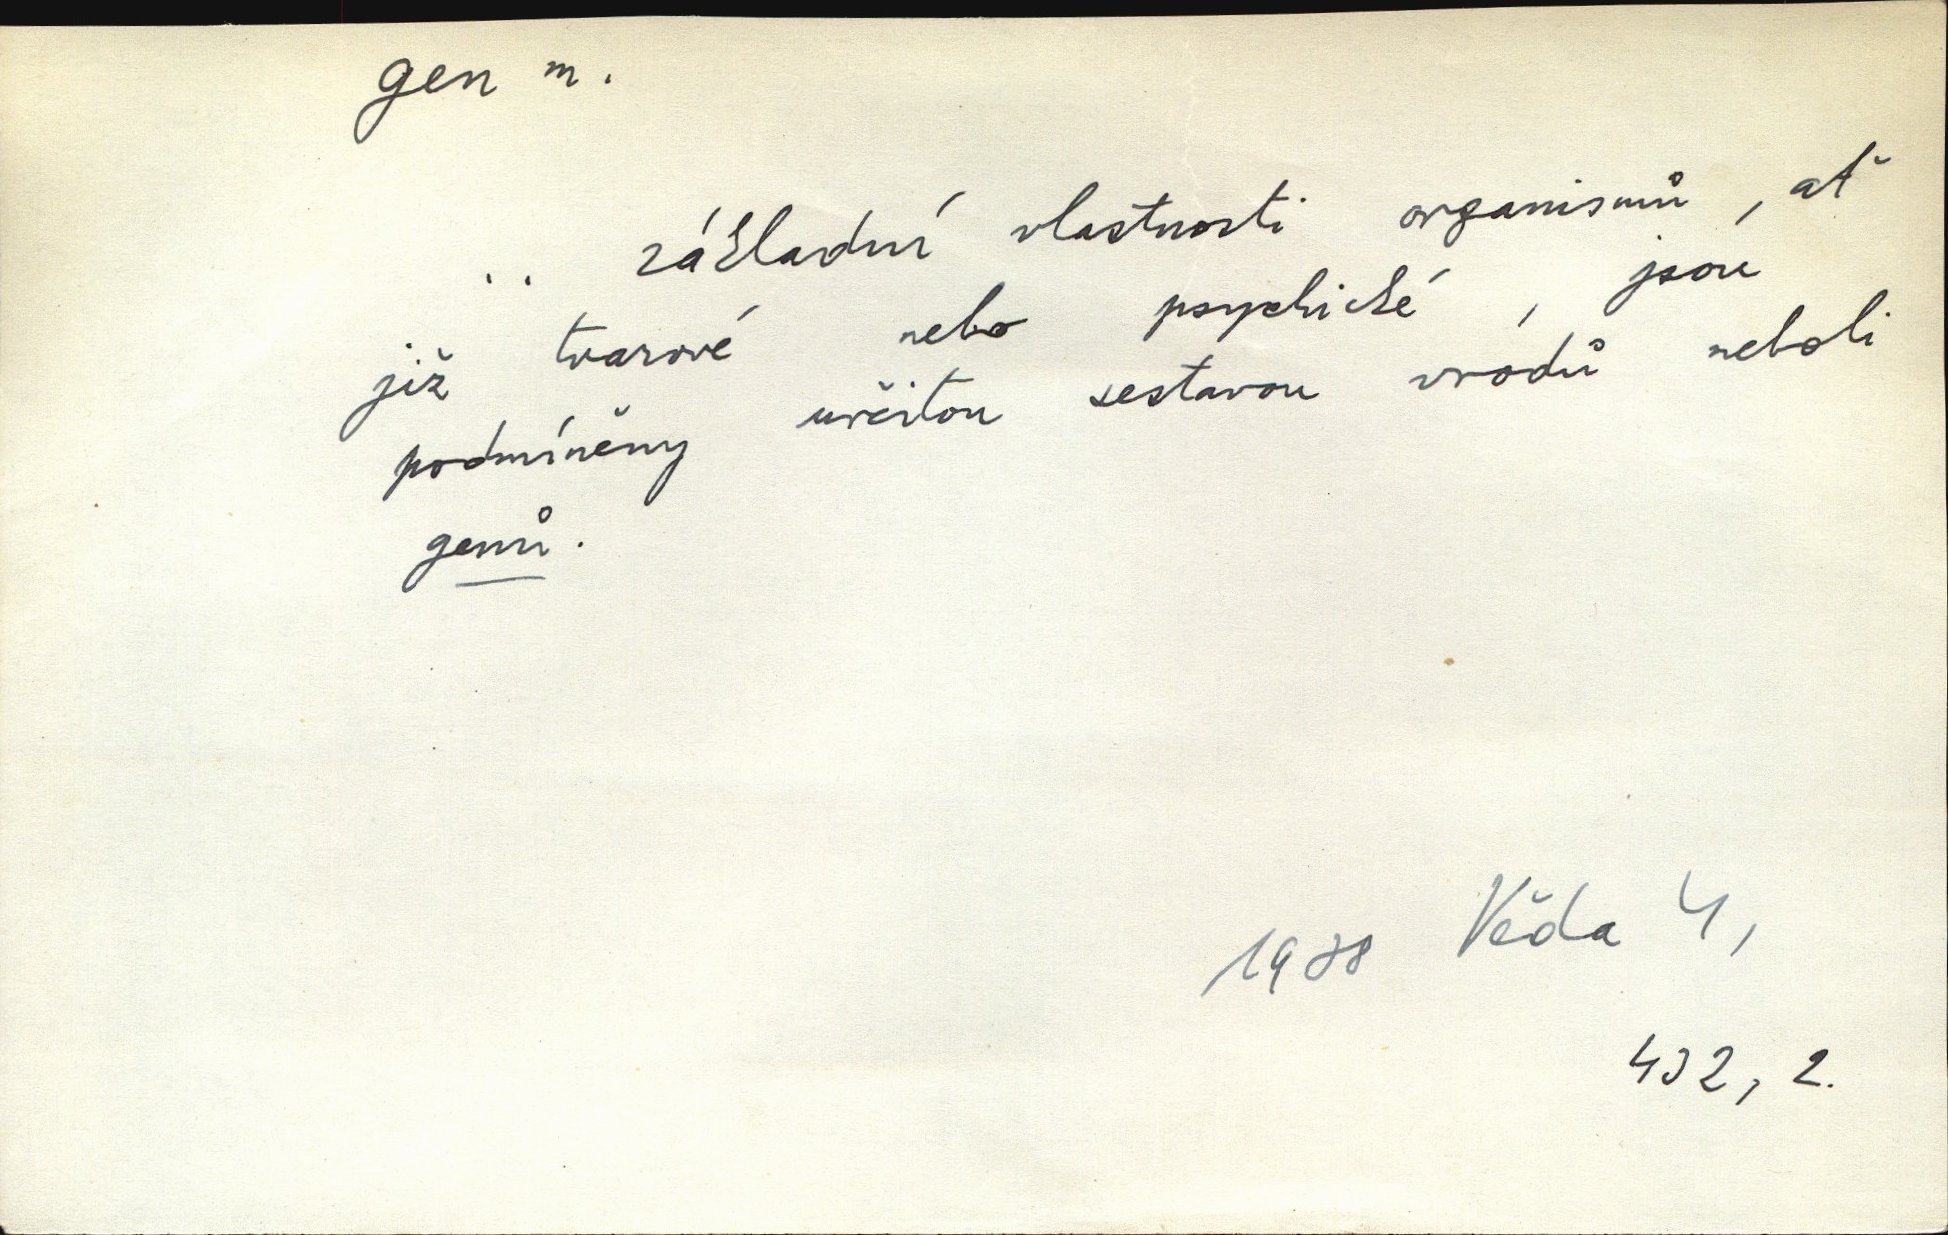 gen m.
.. základní vlastnosti organismů, ať
již tvarové nebo psychické, jsou
podmíněny určitou sestavou vrodů neboli
genů.
1938 Věda 4,
432, 2.